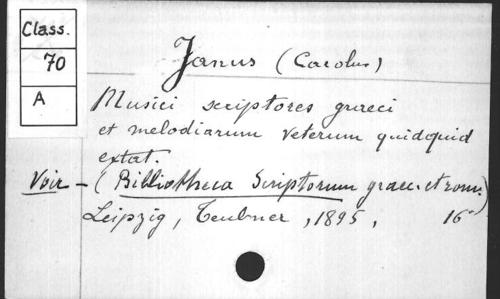 Class.
70
A
Janus (Carolus)
Musici scriptores graeci
et melodiarum veterum quidquid
extat.
Voir - (Bibliotheca Scriptorum graec. et rom.)
Leipzig, Teubner, 1895, 16°